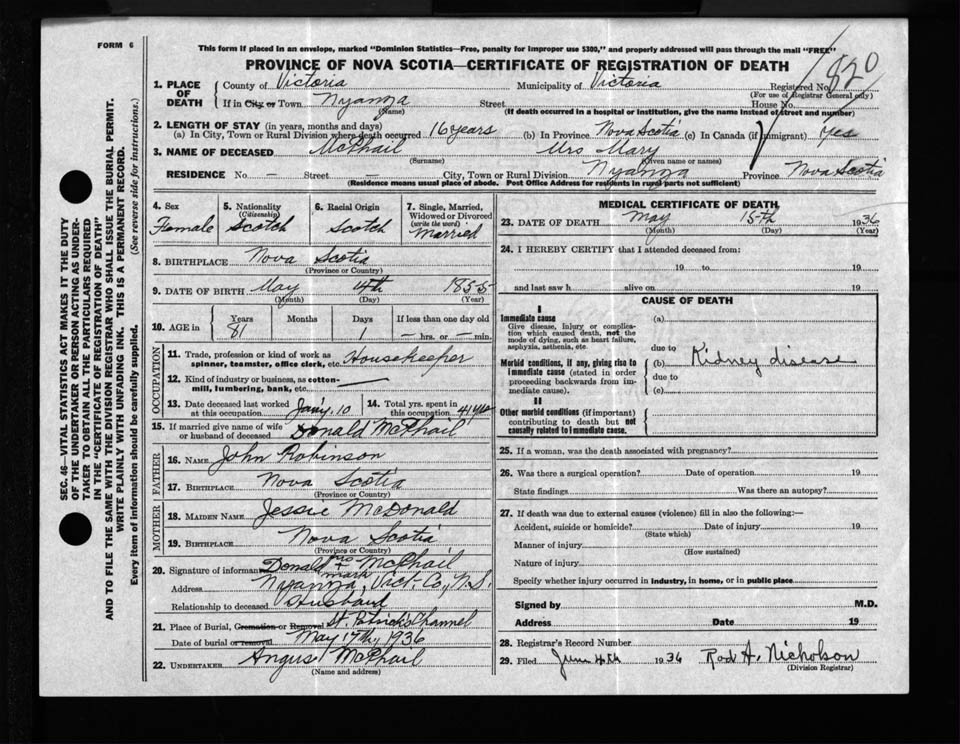 FORM 6
This form if placed in an envelope, marked "Dominion Statistics—Free, penalty for improper use $300," and properly addressed will pass through the mail "FREE"
PROVINCE OF NOVA SCOTIA—CERTIFICATE OF REGISTRATION OF DEATH
1. PLACE OF DEATH { County of Victoria Municipality of Victoria Registered No. 820
(For use of Registrar General only)
If in City or Town. Nyanza Street House No.
(Name) (If death occurred in a hospital or institution, give the name instead of street and number)
2. LENGTH OF STAY (in years, months and days)
(a) In City, Town or Rural Division where death occurred 16 years (b) In Province Nova Scotia (c) In Canada (if immigrant) Yes
3. NAME OF DECEASED McPhail Mrs Mary
(Surname) (Given name or names)
RESIDENCE No. — Street — City, Town or Rural Division Nyanza Province Nova Scotia
(Residence means usual place of abode. Post Office Address for residents in rural parts not sufficient)
4. Sex 5. Nationality (Citizenship) 6. Racial Origin 7. Single, Married, Widowed or Divorced (write the word)
Female Scotch Scotch Married
8. BIRTHPLACE Nova Scotia
(Province or Country)
9. DATE OF BIRTH May 14th 1855
(Month) (Day) (Year)
10. AGE in { Years Months Days If less than one day old
81 1 — hrs. or — min.
OCCUPATION
11. Trade, profession or kind of work as spinner, teamster, office clerk, etc. Housekeeper
12. Kind of industry or business, as cotton-mill, lumbering, bank, etc. —
13. Date deceased last worked at this occupation Jan'y. 10 14. Total yrs. spent in this occupation 41 yrs
15. If married give name of wife or husband of deceased Donald McPhail
FATHER
16. NAME John Robinson
17. BIRTHPLACE Nova Scotia
(Province or Country)
MOTHER
18. MAIDEN NAME Jessie McDonald
19. BIRTHPLACE Nova Scotia
(Province or Country)
20. Signature of informant Donald his + mark McPhail
Address Nyanza, Vict. Co., N.S.
Relationship to deceased Husband
21. Place of Burial, Cremation or Removal St. Patrick's Channel
Date of burial or removal May 17th, 1936
22. UNDERTAKER Angus McPhail
(Name and address)
MEDICAL CERTIFICATE OF DEATH
23. DATE OF DEATH May 15th 1936
(Month) (Day) (Year)
24. I HEREBY CERTIFY that I attended deceased from:
19 to 19
and last saw h alive on 19
CAUSE OF DEATH
I
Immediate cause (a)
Give disease, injury or complication which caused death, not the mode of dying, such as heart failure, asphyxia, asthenia, etc.
due to
Morbid conditions, if any, giving rise to immediate cause (stated in order proceeding backwards from immediate cause).
(b) Kidney disease
due to
(c)
II
Other morbid conditions (if important) contributing to death but not causally related to immediate cause.
25. If a woman, was the death associated with pregnancy?
26. Was there a surgical operation? Date of operation 19
State findings Was there an autopsy?
27. If death was due to external causes (violence) fill in also the following:—
Accident, suicide or homicide? Date of injury 19
(State which)
Manner of injury
(How sustained)
Nature of injury
Specify whether injury occurred in industry, in home, or in public place
Signed by M.D.
Address Date 19
28. Registrar's Record Number
29. Filed June 4th 1936 Rod A. Nicholson
(Division Registrar)
SEC. 46—VITAL STATISTICS ACT MAKES IT THE DUTY
OF THE UNDERTAKER OR PERSON ACTING AS UNDER-
TAKER TO OBTAIN ALL THE PARTICULARS REQUIRED
IN THE "CERTIFICATE OF REGISTRATION OF DEATH"
AND TO FILE THE SAME WITH THE DIVISION REGISTRAR WHO SHALL ISSUE THE BURIAL PERMIT.
WRITE PLAINLY WITH UNFADING INK. THIS IS A PERMANENT RECORD.
Every item of information should be carefully supplied. (See reverse side for instructions.)